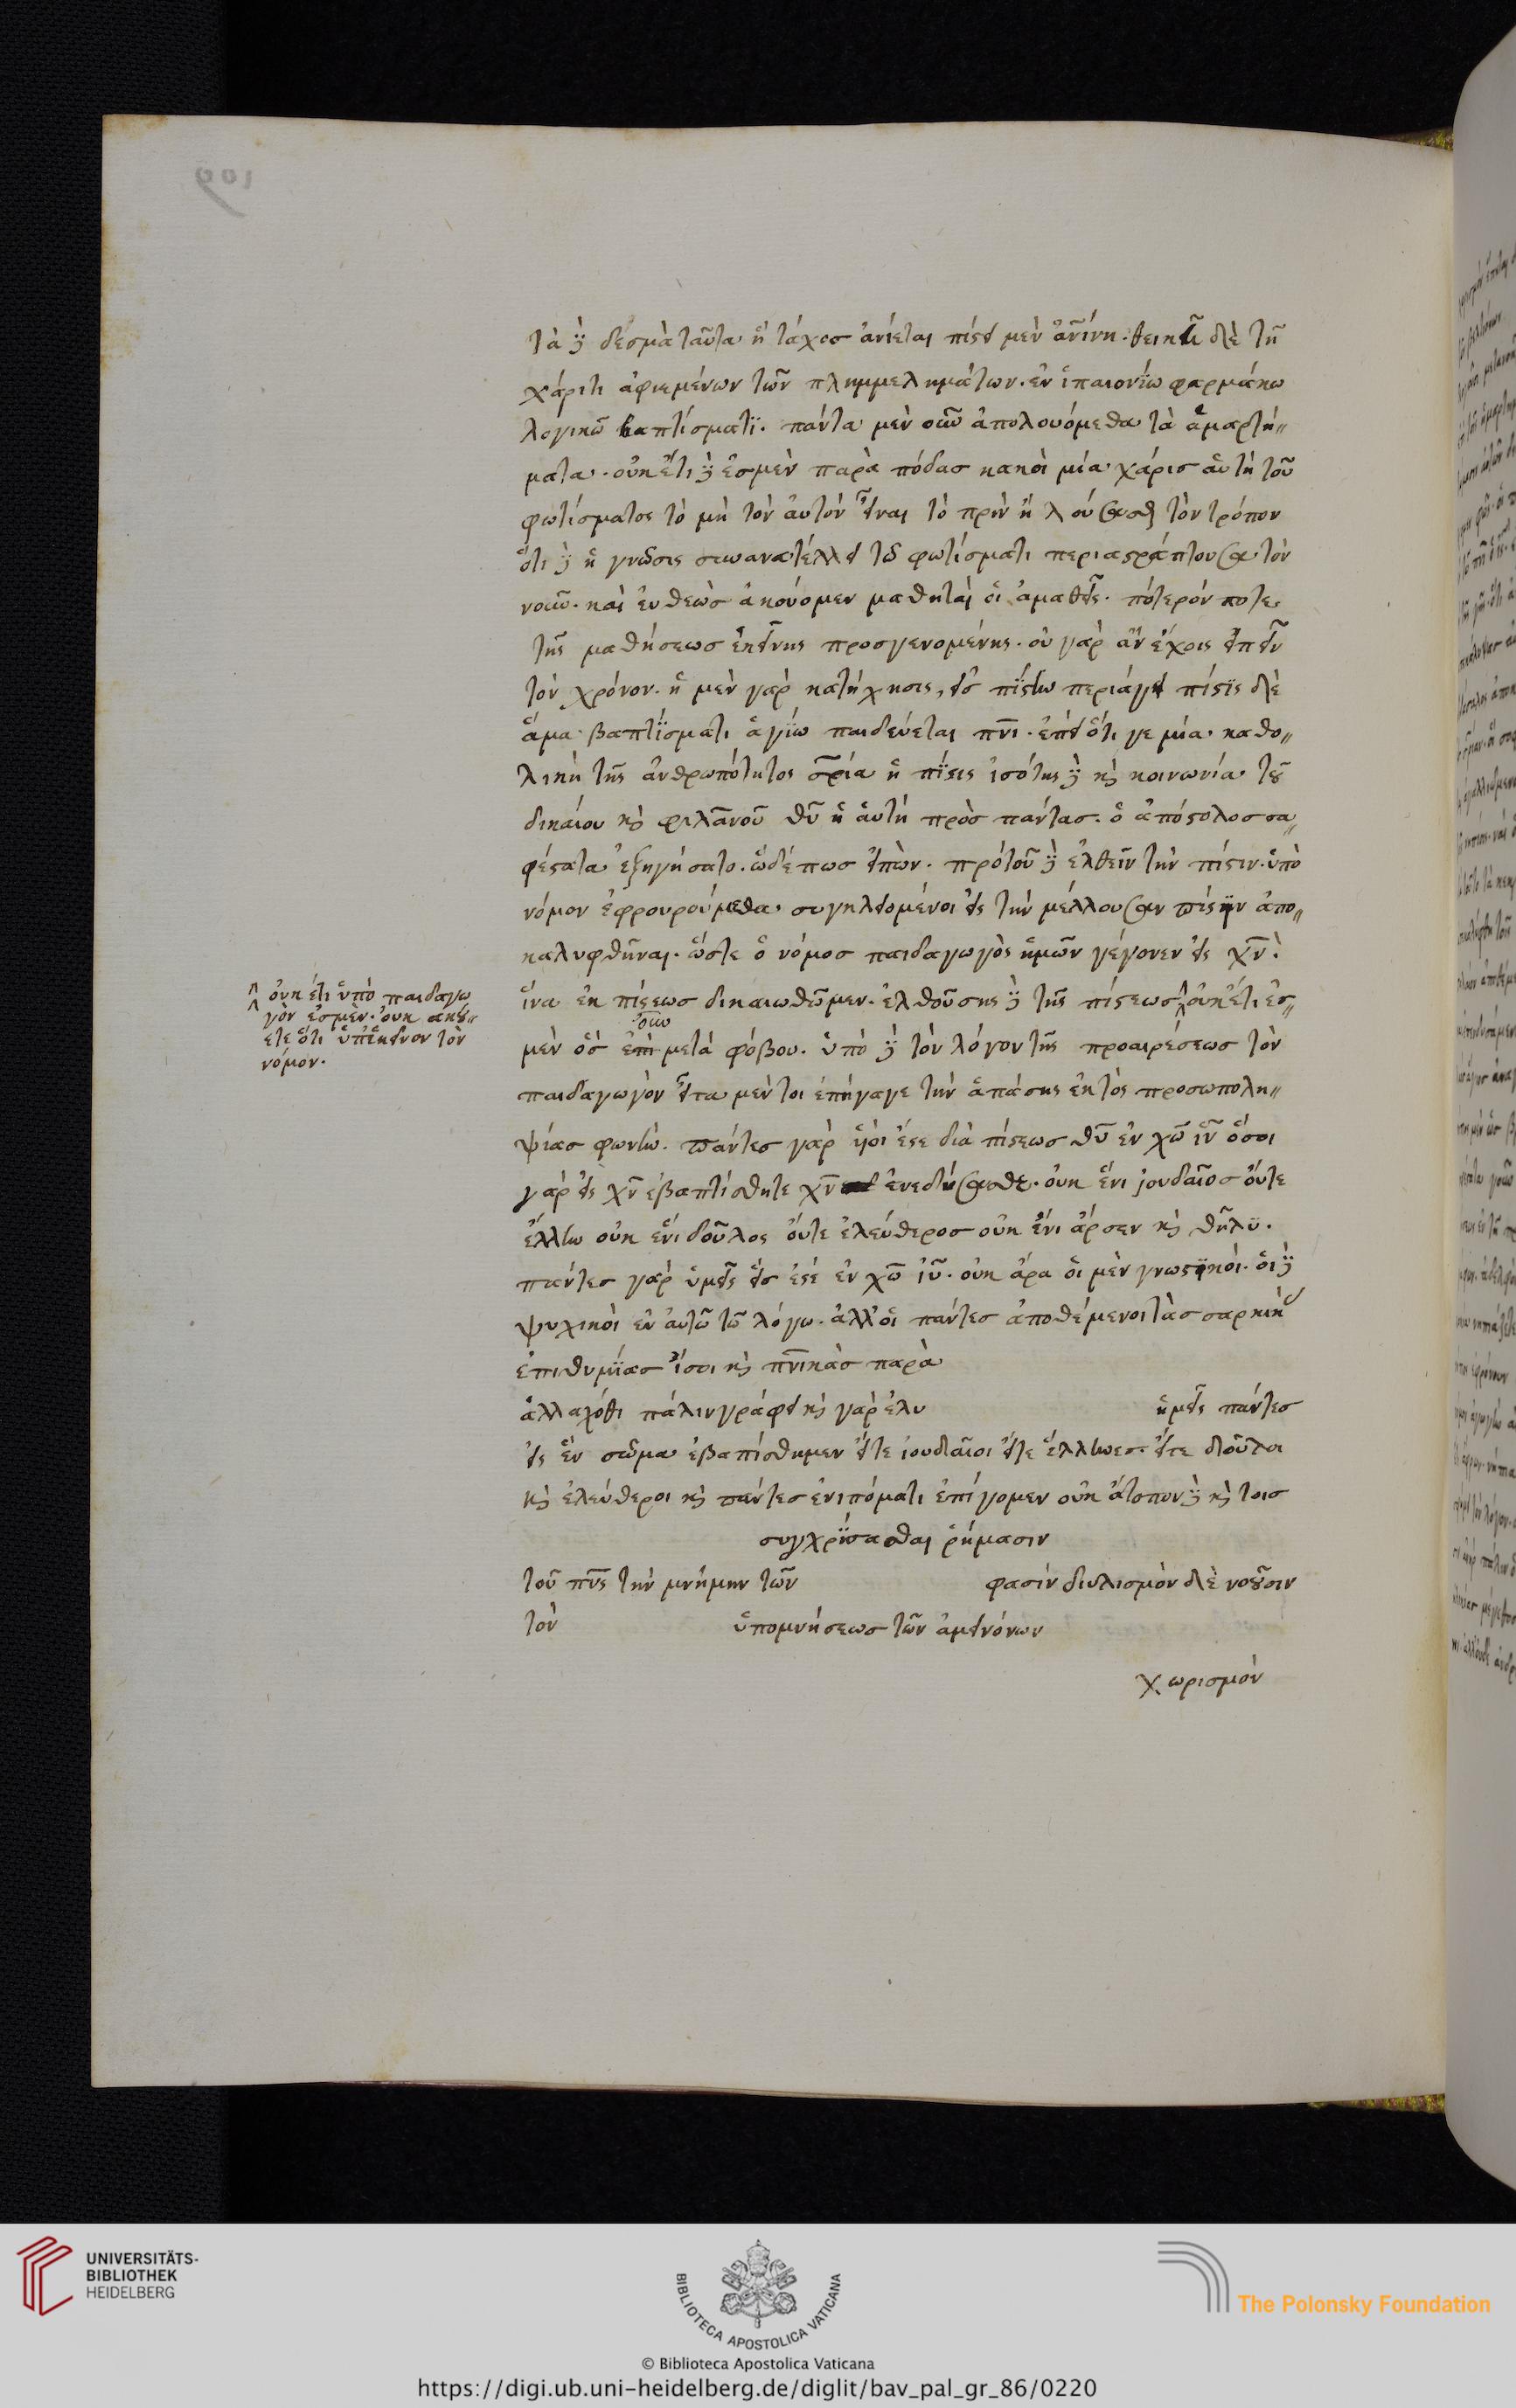 τὰ δὲ δεσμὰ ταῦτα ἧ τάχος ἀνίεται πίστει μὲν ἀνίνη. θεικῆ δὲ τῆ
χάριτι ἀφιεμένων τῶν πλημμελημάτων. ἐν ἱπαιονίω φαρμάκω
λογικῶ βαπτίσματι. πάντα μὲν οὖν ἀπολουόμεθα τὰ ἁμαρτή"
ματα. οὐκ ἔτι δὲ ἐσμὲν παρὰ πόδας κακοὶ μία χάρις αὕτη τοῦ
φωτίσματος τὸ μὴ τὸν αὐτὸν εἶναι τὸ πρὶν ἢ λούσασθαι τὸν τρόπον
ὅτι δὲ ἡ γνῶσις συνανατέλλει τῶ φωτίσματι περιαστράπτουσα τὸν
νοῦν. καὶ εὐθεὼς ἀκούομεν μαθηταὶ οἱ ἀμαθεῖς. πότερόν ποτε
τῆς μαθήσεως ἐκείνης προσγενομένης. οὐ γὰρ ἂν ἔχοις εἰπεῖν
τὸν χρόνον. ἡ μὲν γὰρ κατήχησις, εἰς πίστιν περιάγει πίστις δὲ
ἅμα βαπτίσματι ἁγίω παιδεύεται πνι. ἐπεὶ ὅτι γε μία καθο"
λικὴ τῆς ἀνθρωπότητος σρία ἡ πίστις ἰσότης δὲ καὶ κοινωνία τοῦ
δικαίου καὶ φιλανου θυ ἡ αὐτὴ πρὸς πάντας. ὁ ἀπόστολος σα"
φέστατα ἐξηγήσατο. ὧδέ πως εἰπὼν. πρότοῦ δὲ ἐλθεῖν τὴν πίστιν. ὑπὸ
νόμον ἐφρουρούμεθα. συγκλειομένοι εἰς τὴν μέλλουσαν πίστιν ἀπο"
καλυφθῆναι. ὥστε ὁ νόμος παιδαγωγὸς ἡμῶν γέγονεν εἰς χν.
ἵνα ἐκ πίστεως δικαιωθῶμεν. ἐλθούσης δὲ τῆς πίστεως οὐκ έτι ἐσ"
οὐκ έτι ὑπὸ παιδαγω
γὸν ἐσμὲν. οὐκ ακού"
ετε ὅτι ὑπ' ἐκεῖνον τὸν
νόμον.
οὖν
μὲν ὃς ἐπὶ μετὰ φόβου. ὑπὸ δὲ τὸν λόγον τῆς προαιρέσεως τὸν
παιδαγωγὸν εἶτα μέν τοι ἐπήγαγε τὴν ἁπάσης ἐκτὸς προσωπολη"
ψίας φωνὴν. πάντες γὰρ ὑοί έστε διὰ πίστεως θυ ἐν χω ιυ ὅσοι
γὰρ εἰς χν ἐβαπτίσθητε χν ἐνεδύσασθε. οὐκ ἔνι ἰουδαῖος οὔτε
έλλην οὐκ ἔνι δοῦλος ούτε ἐλεύθερος οὐκ ἔνι ἄρσεν καὶ θῆλυ.
πάντες γὰρ ὑμεῖς εἷς ἐστέ ἐν χω ιυ. οὐκ ἄρα οἱ μὲν γνωστικοὶ. οἱ δὲ
ψυχικοὶ ἐν αὐτῶ τῶ λόγω. ἀλλ' οἱ πάντες ἀποθέμενοι τὰς σαρκικ
ἐπιθυμίας ἴσοι καὶ πνικὰς παρὰ
ἀλλαχόθι πάλιν γράφει καὶ γὰρ ἐλυ ἡμεῖς πάντες
εἰς ἓν σῶμα ἐβαπίσθημεν εἴτε ἰουδαῖοι εἴτε ἕλληνες. εἴτε δοῦλοι
καὶ ἐλεύθεροι καὶ πάντες ἐν πόματι ἐπίγομεν οὐκ άτοπον δὲ καὶ τοις
συγχρήσασθαι ῥήμασιν
τοῦ πνς τὴν μνήμην τῶν φασὶν διυλισμὸν δὲ νοοῦσιν
τὸν ὑπομνήσεως τῶν ἀμεινόνων
χωρισμὸν
UNIVERSITÄTS-
BIBLIOTHEK
HEIDELBERG
BIBLIOTECA APOSTOLICA VATICANA
The Polonsky Foundation
© Biblioteca Apostolica Vaticana
https://digi.ub.uni-heidelberg.de/diglit/bav_pal_gr_86/0220